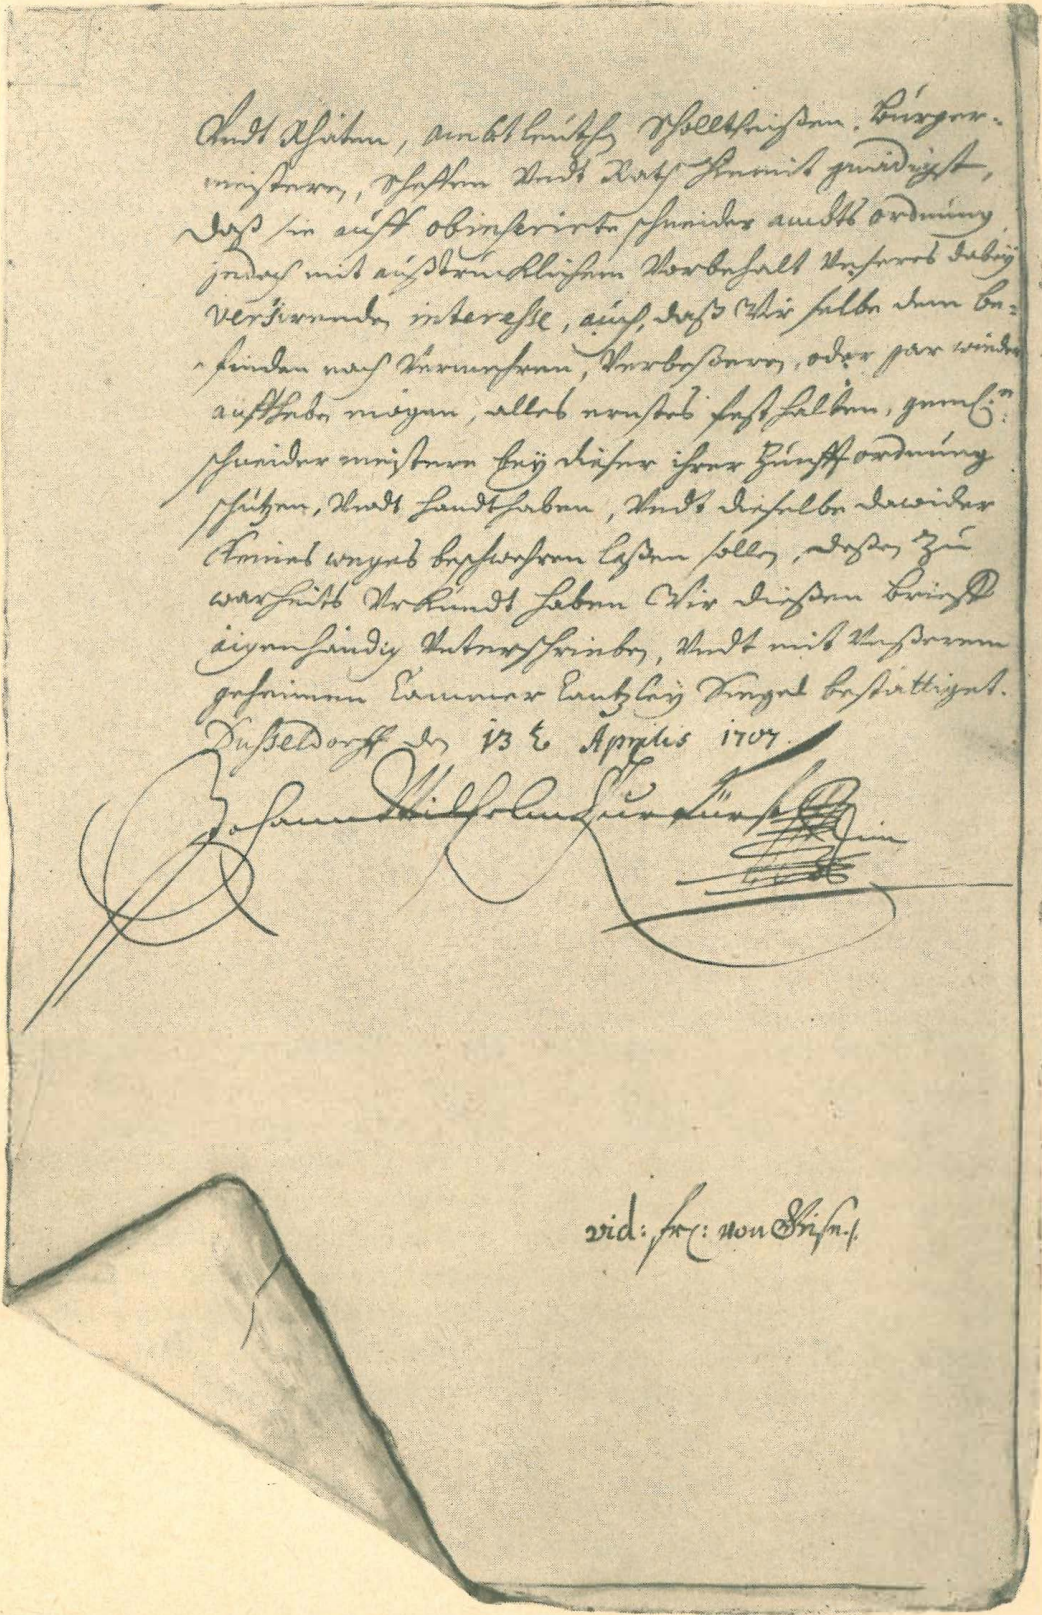 Vndt Rhäten, ambtleuthen Scholltheißen, Bürger-
meistern, Scheffen Vndt Rath hiemit gnädigst,
daß sie auff obinserirte schneider ambts ordnung
jedoch mit außtrücklichem Vorbehalt Vnseres dabey
versirenden interesse, auch, daß Wir selbe dem be-
finden nach Vermehren, Verbeßeren, oder gar wieder
auffheben mögen, alles ernstes fest halten, geml:n
schneider meistere bey dieser ihrer Zunfft ordnung
schützen, Vndt handthaben, Vndt dieselbe dawider
Keines weges beschwehren laßen sollen, deßen Zu
warheits Vrkundt haben Wir dießen brieff
äigenhändig Vnterschrieben, Vndt mit Vnßerem
geheimen Cammer Cantzley Siegel bestättiget.
Düßeldorff den 13t Aprilis 1707.
Johann Wilhelm Churfürst
vid: frh: von